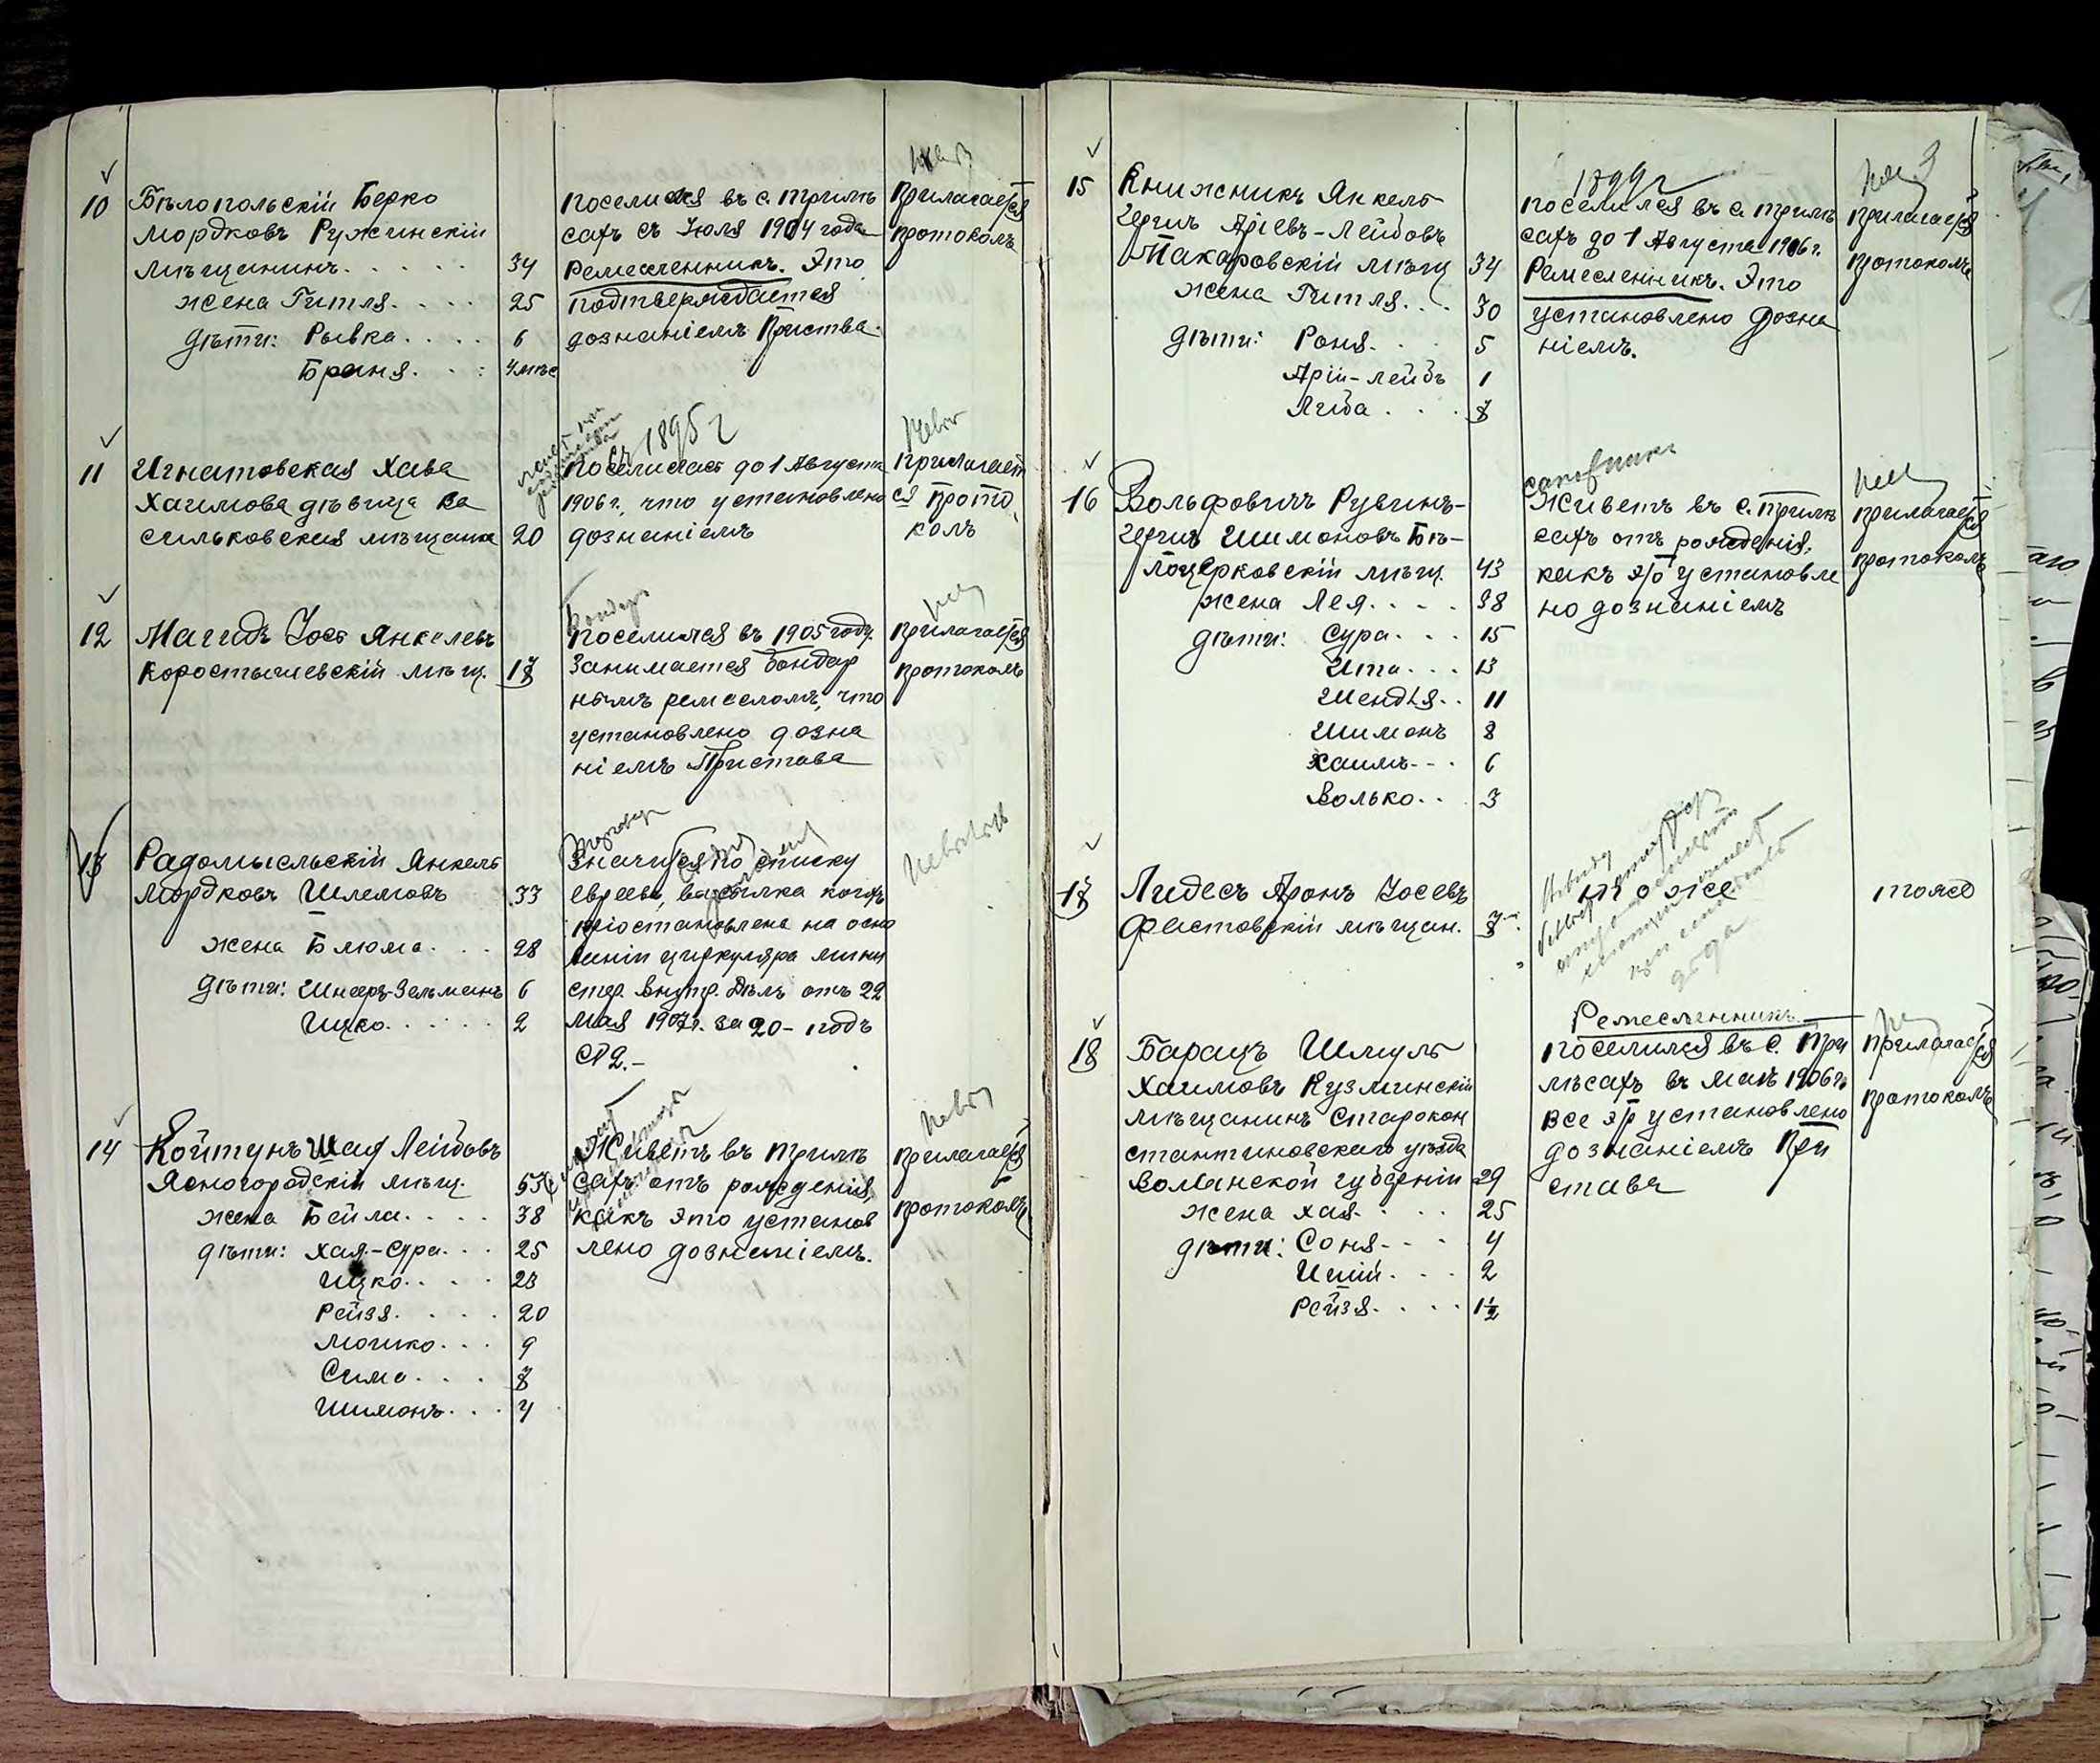 10 Бѣлопольскій Берко
Мордковъ Ружинскій
мѣщанинъ. . . . . 34
жена Гитля. . . . 25
дѣти: Рывка. . . . 6
Браня. . . 4 мѣс
поселился въ с. Примѣ
сахъ съ Іюля 1904 года
Ремесленникъ. Это
подтверждается
дознаніемъ Приства.
Прилагается
протоколъ
11 Игнатовская Хава
Хаимова дѣвица Ва
сильковская мѣщанка 20
съ 1895 г
поселилась до 1 Августа
1906 г., что установлено
дознаніемъ
Прилагает
ся прото
колъ
12 Магидъ Іось Янкелевъ
Коростышевскій мѣщ. 17
Бондарь
поселился въ 1905 году.
Занимается бондар
нымъ ремесломъ, что
установлено дозна
ніемъ Пристава
Прилагается
протоколъ
13 Радомысльскій Янкель
Мордковъ Шлемовъ 33
жена Блюма. . . 28
дѣти: Шнееръ-Зельманъ 6
Ицко. . . . . . 2
Значится по списку
евреевъ, высылка коихъ
пріостановлена на осно
ваніи циркуляра мини
стр. внутр. дѣлъ отъ 22
мая 1907 г. за 20 - годъ
ст 2.-
14 Койтунъ Шая Лейбовъ
Ясногородскій мѣщ. 53
жена Бейла. . . . 38
дѣти: Хая-Сура. . . 25
Ицко. . . . 23
Рейзя. . . . . 20
Мошко. . . 9
Сима. . . . 7
Шимонъ. . . 4
Живетъ въ Примѣ
сахъ отъ рожденія,
какъ это установ
лено дознаніемъ.
Прилагается
протоколъ
15 Книжникъ Янкель
Гершъ Аріевъ-Лейбовъ
Макаровскій мѣщ 34
жена Гитля. . . 30
дѣти: Роня. . . 5
Арій-Лейбъ 1
Лида . . . 7
1899 г
поселился въ с. Примѣ
сахъ до 1 Августа 1906 г.
Ремесленникъ. Это
установлено дозна
ніемъ.
Прилагается
протоколъ
16 Вольфовичъ Рувинъ-
Гершъ Шимоновъ Бѣ-
лоцерковскій мѣщ. 43
жена Лея. . . . 38
дѣти: Сура. . . 15
Ита. . . 13
Шендля. . 11
Шимонъ 8
Хаимъ- - . 6
Волько. . . 3
сапожникъ
Живетъ въ с. Примѣ
сахъ отъ рожденія,
какъ это установле
но дознаніемъ
Прилагается
протоколъ
17 Лидесъ Аронъ Іосевъ
Фастовскій мѣщан. 7
тоже
тоже
18 Барацъ Шмуль
Хаимовъ Кузминскій
мѣщанинъ Старокон
стантиновскаго уѣзда
Волынской губерніи 29
жена Хая. . . . 25
дѣти: Соня- - . 4
Ицій. . . 2
Рейзя. . . . 1½
Ремесленникъ
поселился въ с. При
мѣсахъ въ маѣ 1906 г.
все это установлено
дознаніемъ При
става
Прилагается
протоколъ